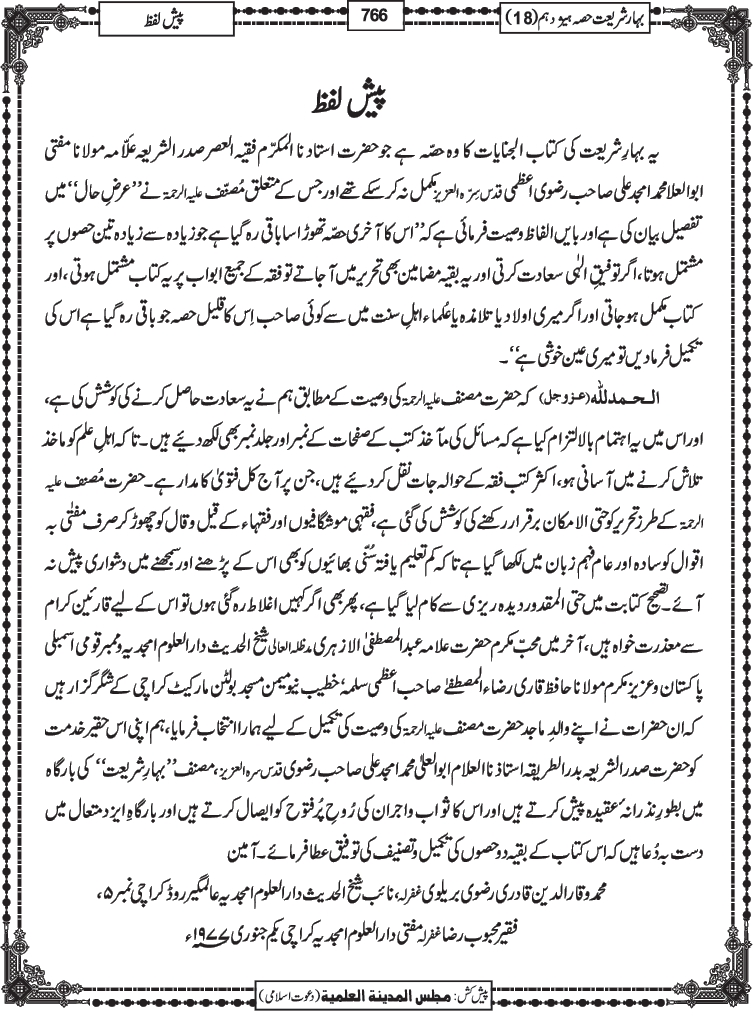 بہارِشریعت حصہ ہیژدہم (18)
766
پیش لفظ
پیش لفظ
یہ بہارِشریعت کی کتاب الجنایات کا وہ حصّہ ہے جو حضرت استاذنا المکرّم فقیہ العصر صدر الشریعہ علّامہ مولانا مفتی
ابوالعلا محمد امجد علی صاحب رضوی اعظمی قدّس سِرّہ العزیز مکمل نہ کرسکے تھے اور جس کے متعلق مُصنّف علیہ الرحمۃ نے ’’عرضِ حال‘‘ میں
تفصیل بیان کی ہے اور بایں الفاظ وصیت فرمائی ہے کہ ’’اس کا آخری حصّہ تھوڑا سا باقی رہ گیا ہے جو زیادہ سے زیادہ تین حصوں پر
مشتمل ہوتا، اگر توفیقِ الٰہی سعادت کرتی اور یہ بقیہ مضامین بھی تحریر میں آجاتے تو فقہ کے جمیع ابواب پر یہ کتاب مشتمل ہوتی، اور
کتاب مکمل ہوجاتی اور اگر میری اولاد یا تلامذہ یا عُلماء اہلِ سنت میں سے کوئی صاحب اِس کا قلیل حصہ جو باقی رہ گیا ہے اس کی
تکمیل فرمادیں تو میری عین خوشی ہے‘‘۔
الحمدللہ (عزوجل) کہ حضرت مصنف علیہ الرحمۃ کی وصیت کے مطابق ہم نے یہ سعادت حاصل کرنے کی کوشش کی ہے،
اور اس میں یہ اہتمام بالالتزام کیا ہے کہ مسائل کی مآخذ کتب کے صفحات کے نمبر اور جلد نمبر بھی لکھ دئیے ہیں۔ تاکہ اہلِ علم کو ماخذ
تلاش کرنے میں آسانی ہو، اکثر کتب فقہ کے حوالہ جات نقل کردئیے ہیں، جن پر آج کل فتویٰ کا مدار ہے۔ حضرت مُصنف علیہ
الرحمۃ کے طرزِ تحریر کو حتی الامکان برقرار رکھنے کی کوشش کی گئی ہے، فقہی موشگافیوں اور فقہاء کے قیل و قال کو چھوڑ کر صرف مفتٰی بہ
اقوال کو سادہ اور عام فہم زبان میں لکھا گیا ہے تاکہ کم تعلیم یافتہ سُنّی بھائیوں کو بھی اس کے پڑھنے اور سمجھنے میں دشواری پیش نہ
آئے۔ تصحیح کتابت میں حتی المقدور دیدہ ریزی سے کام لیا گیا ہے، پھر بھی اگر کہیں اغلاط رہ گئی ہوں تو اس کے لیے قارئین کرام
سے معذرت خواہ ہیں، آخر میں محبّ مکرم حضرت علامہ عبدالمصطفیٰ الازہری مدظلہ العالی شیخ الحدیث دارالعلوم امجدیہ و ممبر قومی اسمبلی
پاکستان و عزیز مکرم مولانا حافظ قاری رضاء المصطفےٰ صاحب اعظمی سلمہٗ خطیب نیو میمن مسجد بولٹن مارکیٹ کراچی کے شکرگزار ہیں
کہ ان حضرات نے اپنے والدِ ماجد حضرت مصنف علیہ الرحمۃ کی وصیت کی تکمیل کے لیے ہمارا انتخاب فرمایا، ہم اپنی اس حقیر خدمت
کو حضرت صدر الشریعہ بدر الطریقہ استاذنا العلام ابوالعلیٰ محمد امجد علی صاحب رضوی قدس سرہ العزیز، مصنف ’’بہارِشریعت‘‘ کی بارگاہ
میں بطور نذرانۂ عقیدہ پیش کرتے ہیں اور اس کا ثواب و اجر ان کی رُوحِ پُرفتوح کو ایصال کرتے ہیں اور بارگاہِ ایزد متعال میں
دست بہ دُعا ہیں کہ اس کتاب کے بقیہ دو حصوں کی تکمیل و تصنیف کی توفیق عطا فرمائے۔ آمین
محمد وقارالدین قادری رضوی بریلوی غفرلہ، نائب شیخ الحدیث دارالعلوم امجدیہ عالمگیر روڈ کراچی نمبر ۵،
فقیر محبوب رضا غفرلہ مفتی دارالعلوم امجدیہ کراچی یکم جنوری ۱۹۷۷ء
پیش کش: مجلس المدینۃ العلمیۃ (دعوتِ اسلامی)